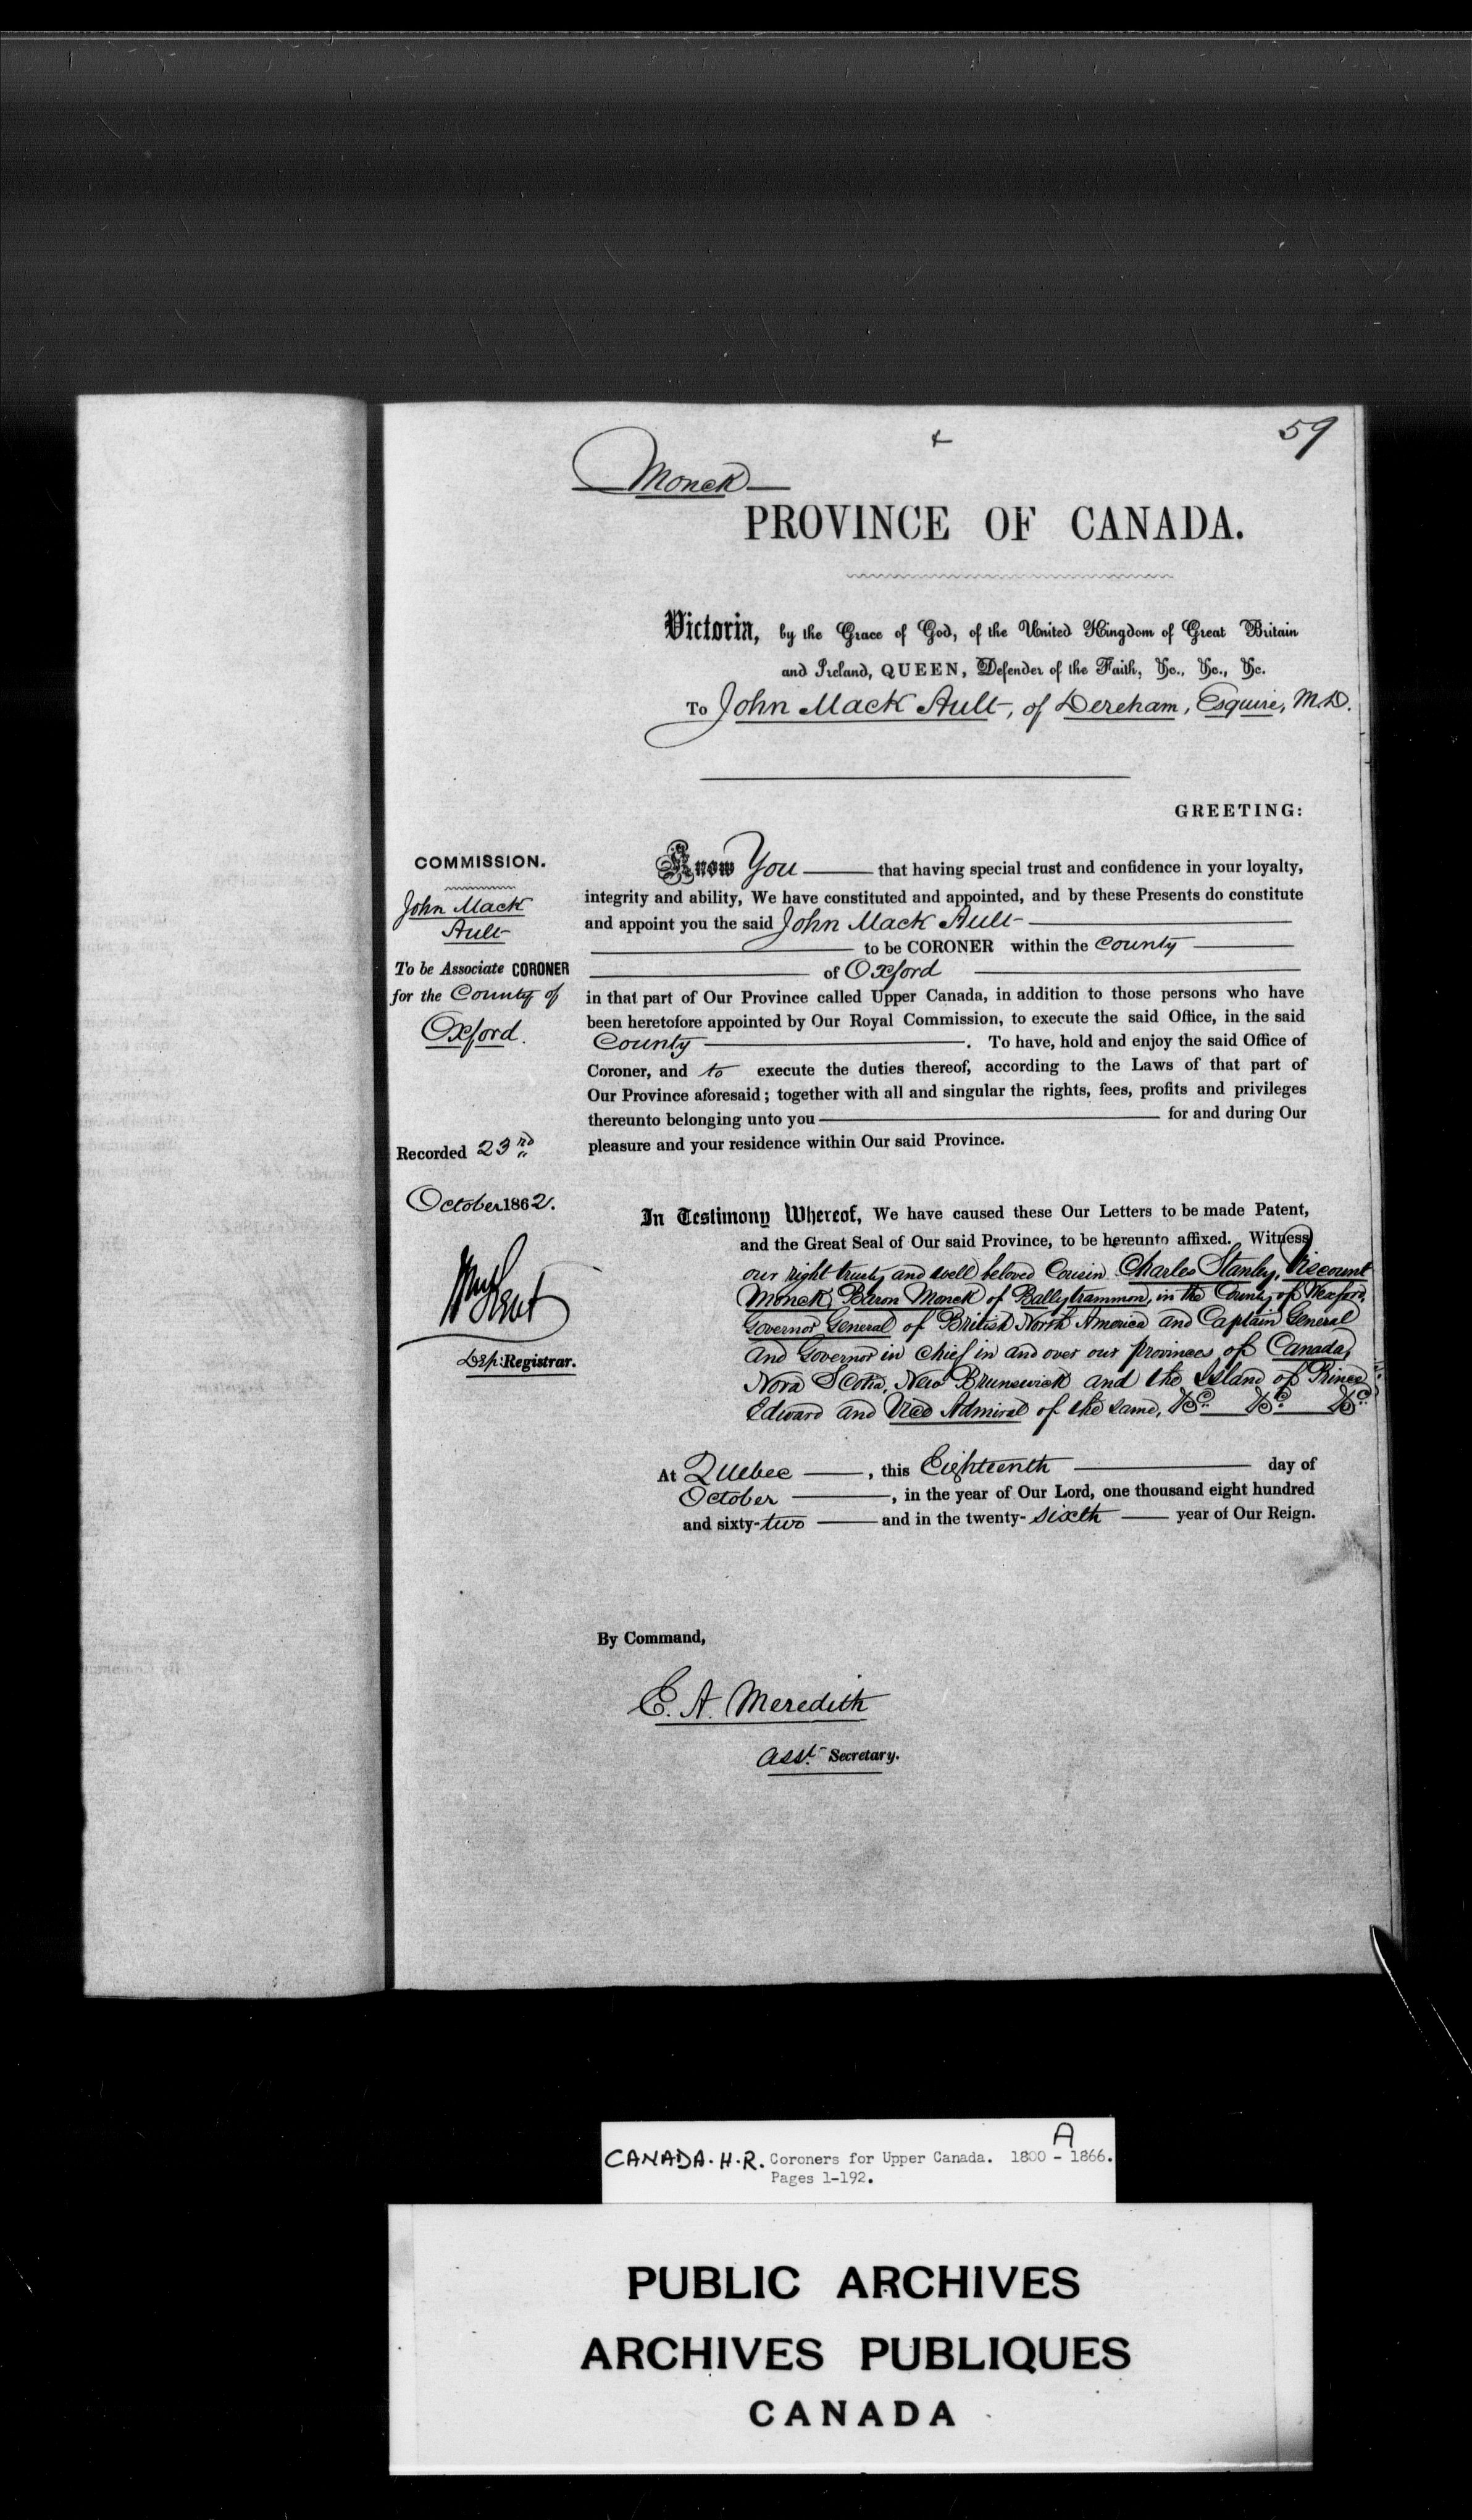 59
+
Monck
PROVINCE OF CANADA.
Victoria, by the Grace of God, of the United Kingdom of Great Britain
and Ireland, QUEEN, Defender of the Faith, &c., &c., &c.
To John Mack Ault, of Dereham, Esquire, M.D.
GREETING:
COMMISSION.
John Mack
Ault
To be Associate CORONER
for the County of
Oxford.
Recorded 23rd
October 1862.
Wm Kent
Dep: Registrar.
Know You that having special trust and confidence in your loyalty,
integrity and ability, We have constituted and appointed, and by these Presents do constitute
and appoint you the said John Mack Ault
to be CORONER within the County
of Oxford
in that part of Our Province called Upper Canada, in addition to those persons who have
been heretofore appointed by Our Royal Commission, to execute the said Office, in the said
County . To have, hold and enjoy the said Office of
Coroner, and to execute the duties thereof, according to the Laws of that part of
Our Province aforesaid; together with all and singular the rights, fees, profits and privileges
thereunto belonging unto you for and during Our
pleasure and your residence within Our said Province.
In Testimony Whereof, We have caused these Our Letters to be made Patent,
and the Great Seal of Our said Province, to be hereunto affixed. Witness
our right trusty and well beloved Cousin Charles Stanley, Viscount
Monck, Baron Monck of Ballytrammon, in the County of Wexford,
Governor General of British North America and Captain General
and Governor in Chief in and over our provinces of Canada,
Nova Scotia, New Brunswick and the Island of Prince
Edward and Vice Admiral of the same, &c. &c. &c.
At Quebec , this Eighteenth day of
October , in the year of Our Lord, one thousand eight hundred
and sixty-two and in the twenty-sixth year of Our Reign.
By Command,
E. A. Meredith
Asst. Secretary.
A
CANADA. H.R. Coroners for Upper Canada. 1800 - 1866.
Pages 1-192.
PUBLIC ARCHIVES
ARCHIVES PUBLIQUES
CANADA